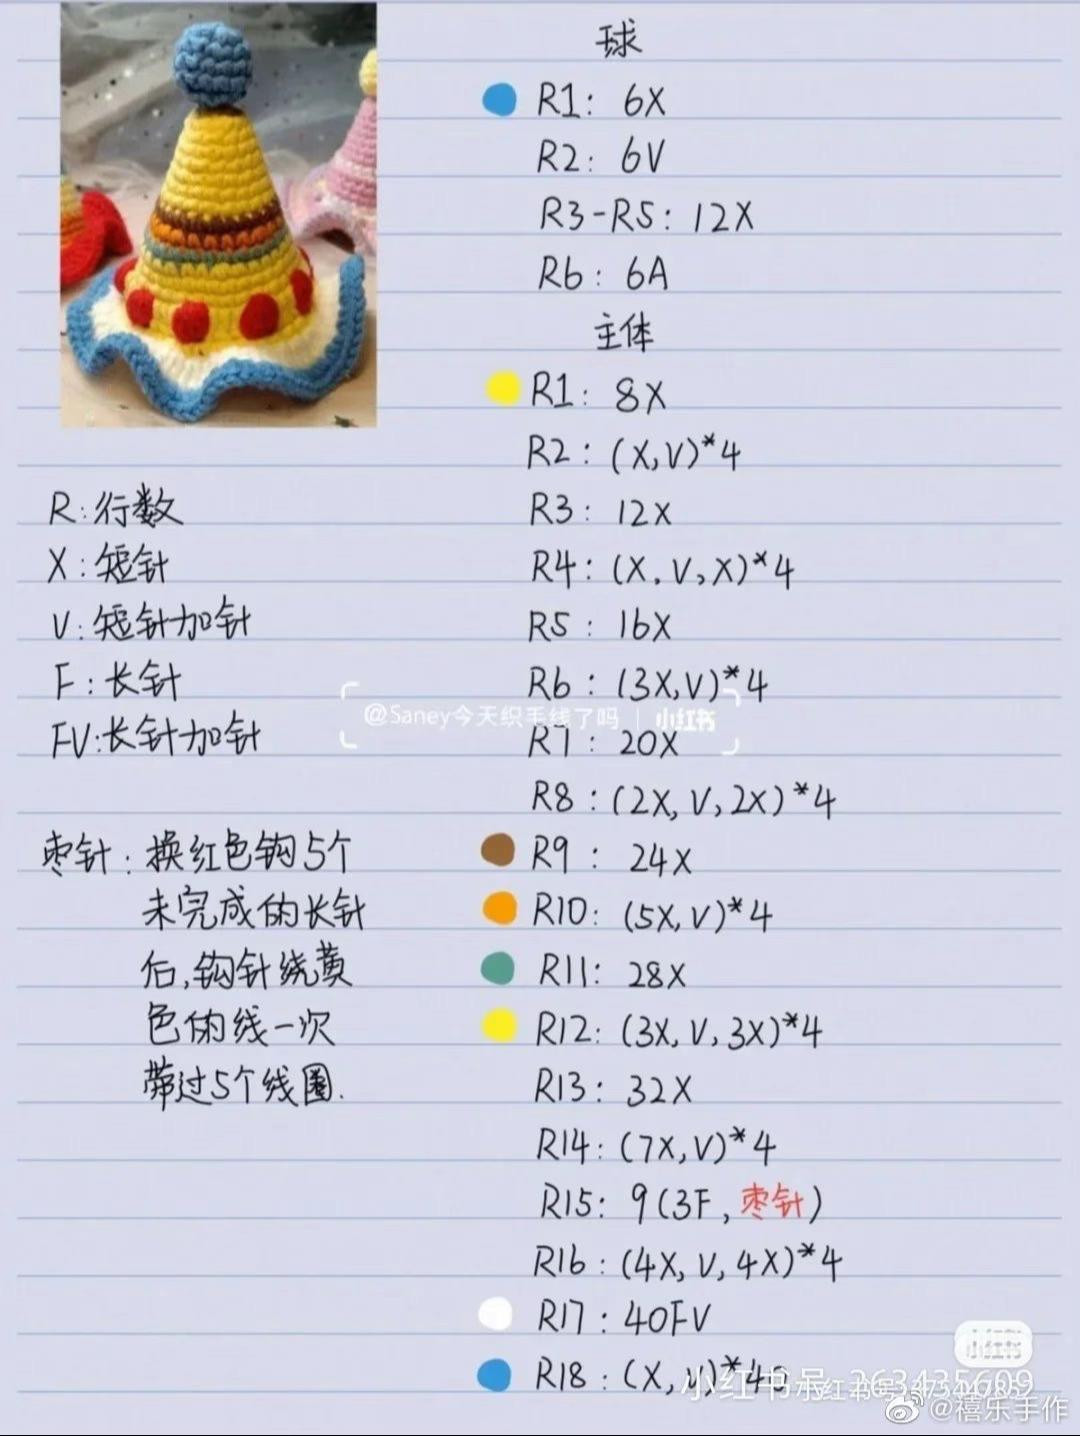 球
R1: 6X
R2: 6V
R3-R5: 12X
R6: 6A
主体
R1: 8X
R2: (X,V)*4
R3: 12X
R4: (X,V,X)*4
R5: 16X
R6: (3X,V)*4
R7: 20X
R8: (2X,V,2X)*4
R9: 24X
R10: (5X,V)*4
R11: 28X
R12: (3X,V,3X)*4
R13: 32X
R14: (7X,V)*4
R15: 9(3F,枣针)
R16: (4X,V,4X)*4
R17: 40FV
R18: (X,V)*40
R:行数
X:短针
V:短针加针
F:长针
FV:长针加针
枣针:换红色钩5个
未完成的长针
后,钩针绕黄
色的线一次
带过5个线圈.
@Saney今天织毛线了吗 | 小红书
小红书
小红书号
@禧乐手作